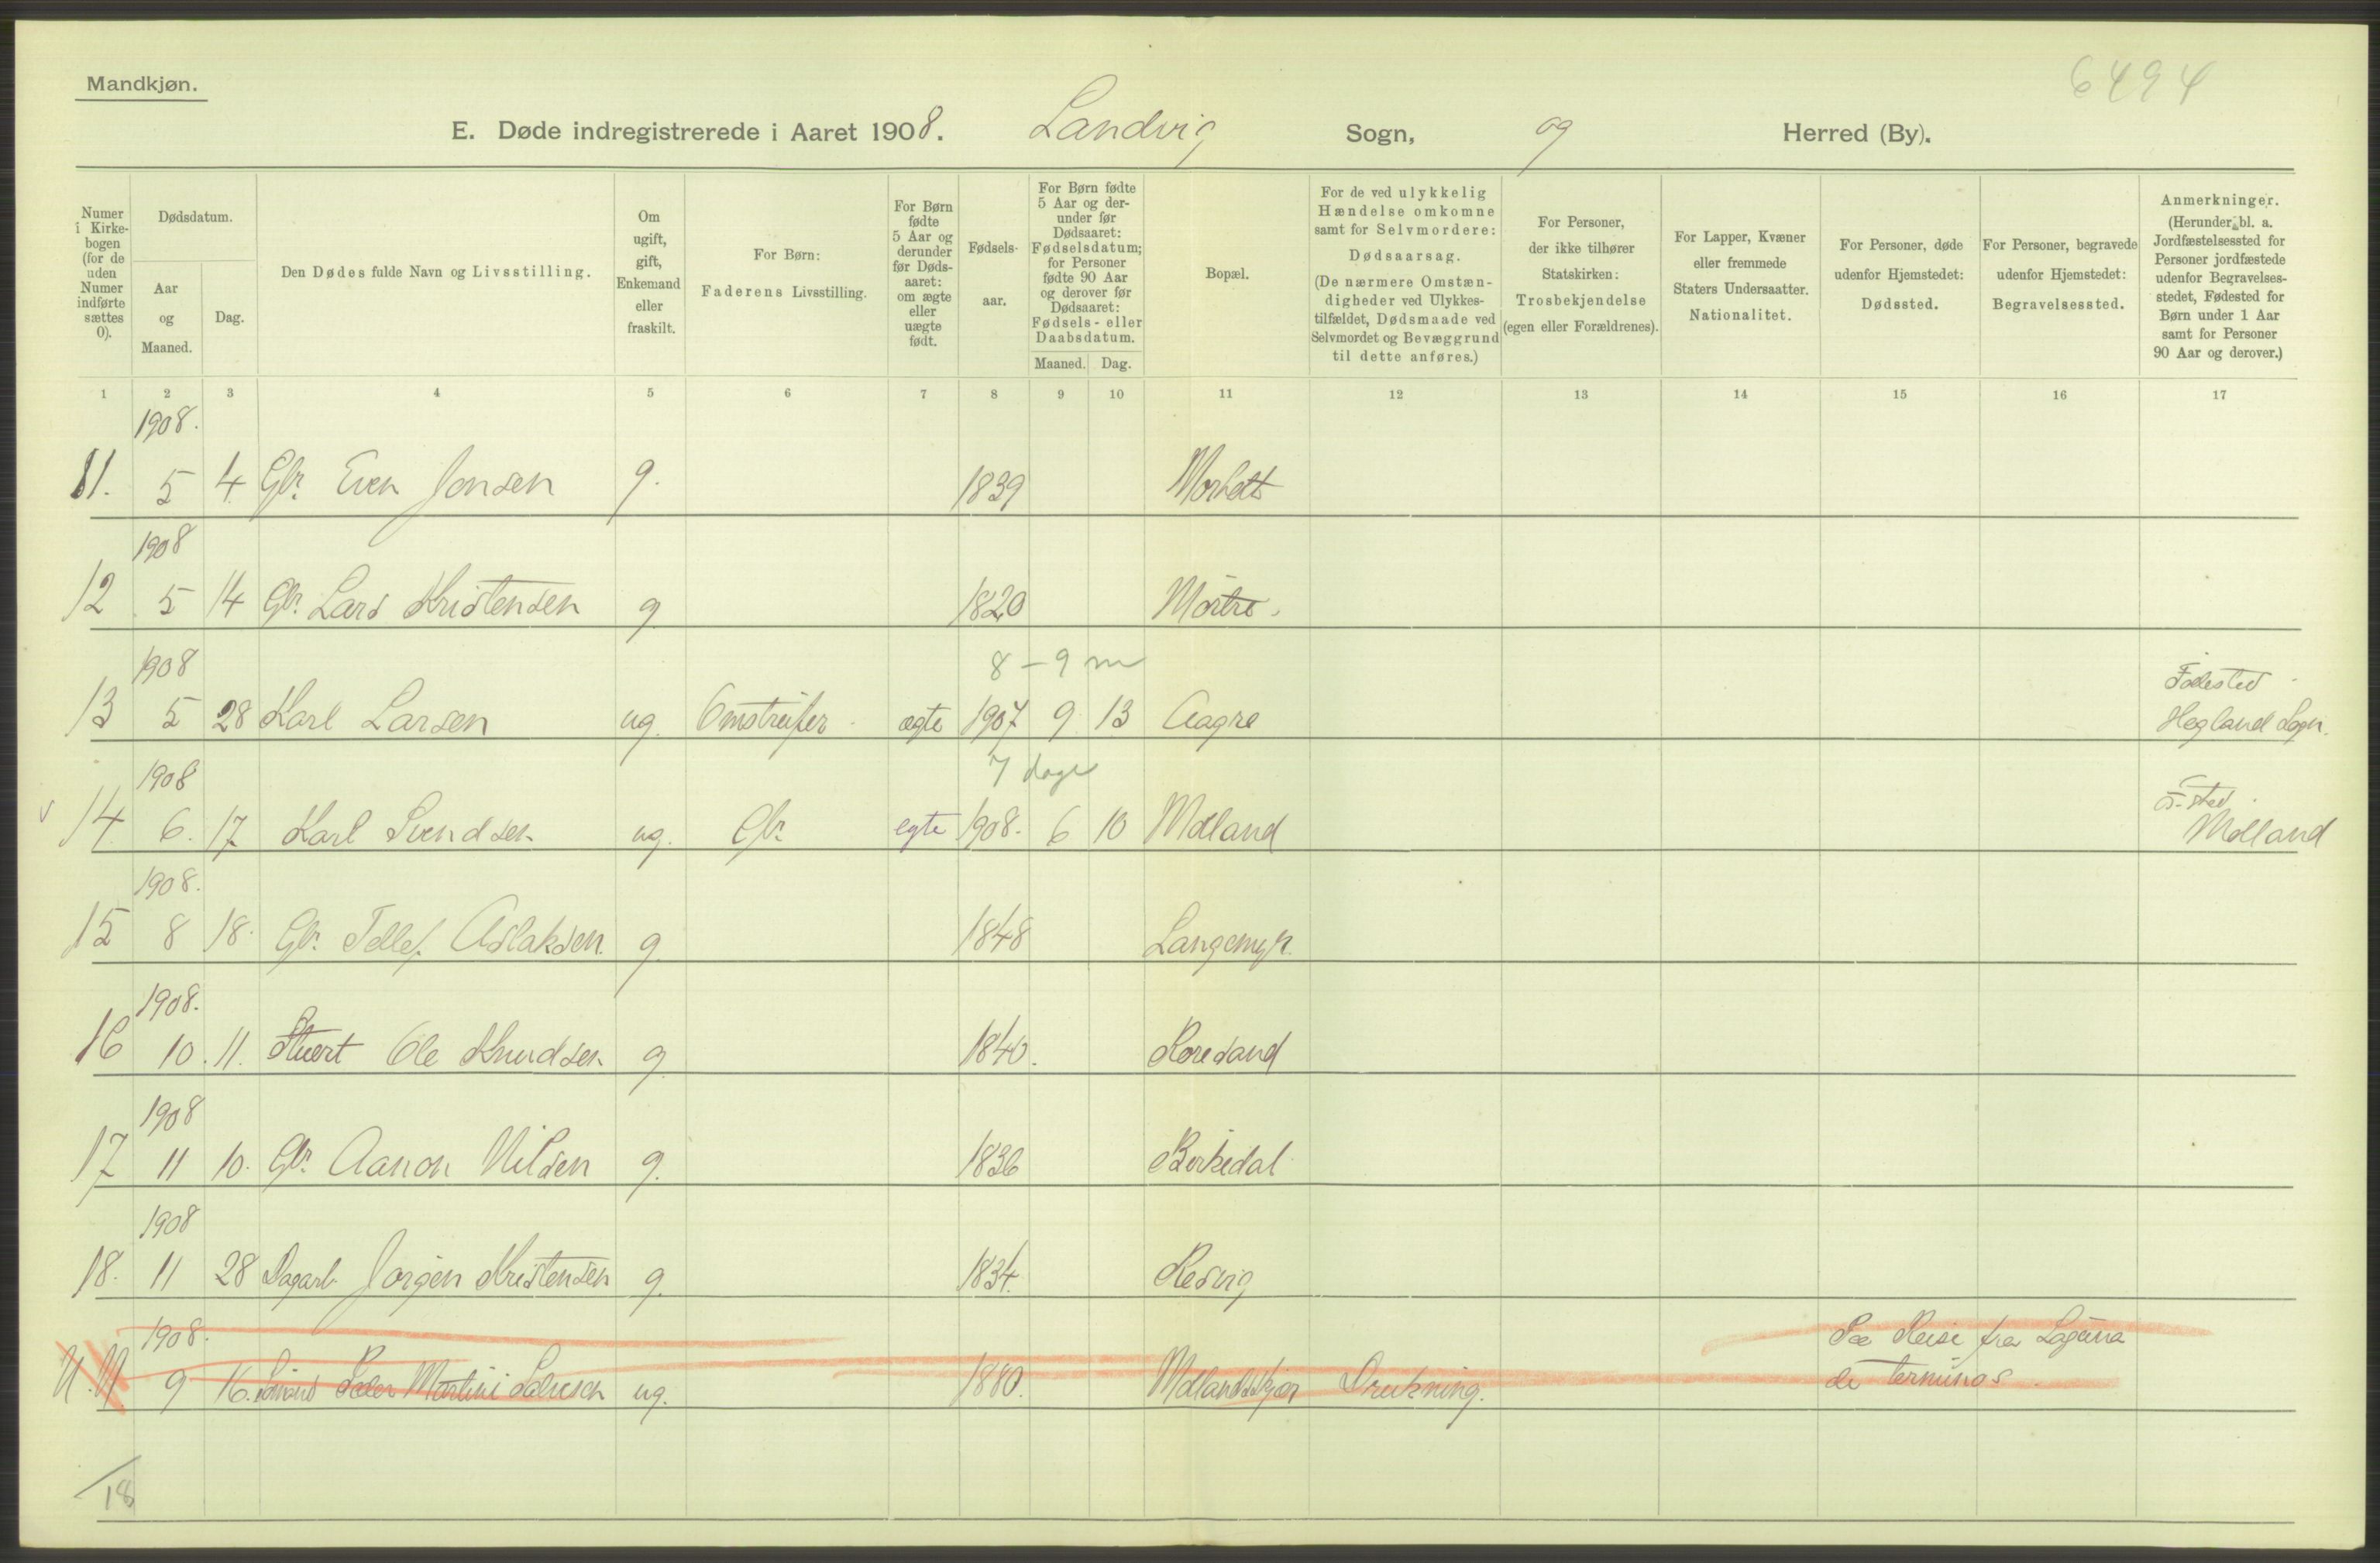 Mandkjøn.
6494
E. Døde indregistrerede i Aaret 1908. Landvig Sogn, og Herred (By).
Numer i Kirkebogen (for de uden Numer indførte sættes 0).
Dødsdatum.
Aar og Maaned.
Dag.
Den Dødes fulde Navn og Livsstilling.
Om ugift, gift, Enkemand eller fraskilt.
For Børn: Faderens Livsstilling.
For Børn fødte 5 Aar og derunder før Dødsaaret: om ægte eller uægte født.
Fødselsaar.
For Børn fødte 5 Aar og derunder før Dødsaaret: Fødselsdatum; for Personer fødte 90 Aar og derover før Dødsaaret: Fødsels- eller Daabsdatum.
Maaned. Dag.
Bopæl.
For de ved ulykkelig Hændelse omkomne samt for Selvmordere: Dødsaarsag. (De nærmere Omstændigheder ved Ulykkestilfældet, Dødsmaade ved Selvmordet og Bevæggrund til dette anføres.)
For Personer, der ikke tilhører Statskirken: Trosbekjendelse (egen eller Forældrenes).
For Lapper, Kvæner eller fremmede Staters Undersaatter. Nationalitet.
For Personer, døde udenfor Hjemstedet: Dødssted.
For Personer, begravede udenfor Hjemstedet: Begravelsessted.
Anmerkninger. (Herunder bl. a. Jordfæstelsessted for Personer jordfæstede udenfor Begravelsesstedet, Fødested for Børn under 1 Aar samt for Personer 90 Aar og derover.)
1 2 3 4 5 6 7 8 9 10 11 12 13 14 15 16 17
1908.
11. 5 4 Gbr. Even Jonsen g. 1839
1908
12 5 14 Gbr. Lars Kristensen g 1820
1908 8 - 9 m
13 5 28 Karl Larsen ug. Omstreifer ægte 1907 9 13 Aagre Fødested Hegland Sogn.
1908 7 dage
14 6. 17 Karl Svendsen ug. Gbr. egte 1908. 6 10 Molland F.sted Molland
1908.
15 8 18. Gbr. Tellef Aslaksen. g. 1848 Langemyr.
1908.
16 10. 11. Ole Knudsen g. 1840. Roresand
1908
17 11 10. Gbr. Aanon Nilsen g. 1836 Birkedal
1908
18. 11 28 Dagarb. Jørgen Kristensen g. 1834. Resvig
1908. Paa Reise fra Laguna
9 16. Peder Martini Salvesen ug. 1880. Mollandskjær Drukning. de Terminos
18